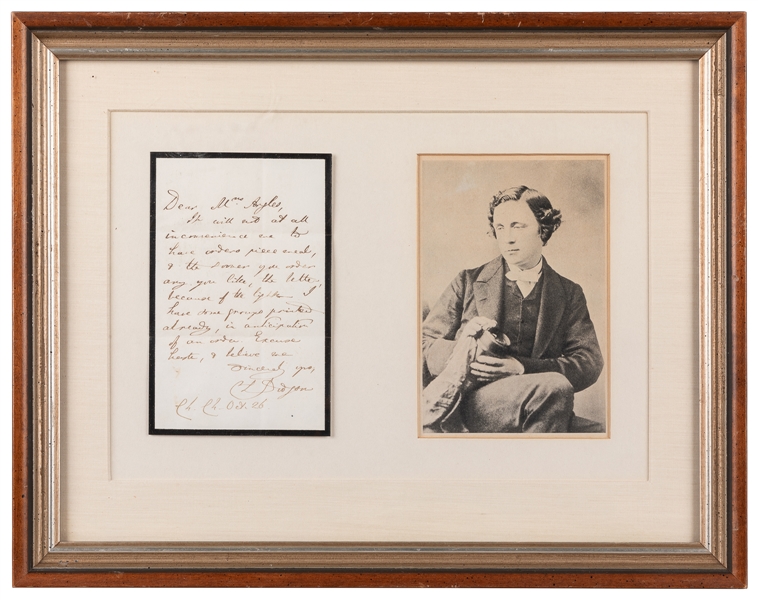 Dear Mrs Ayles,
It will not at all
inconvenience me to
have orders piecemeal,
& the sooner you order
any you like, the better,
because of the light. I
have some groups printed
already, in anticipation
of an order. Excuse
haste, & believe me
Sincerely yrs,
C L Dodgson
Ch. Ch. Oct. 26